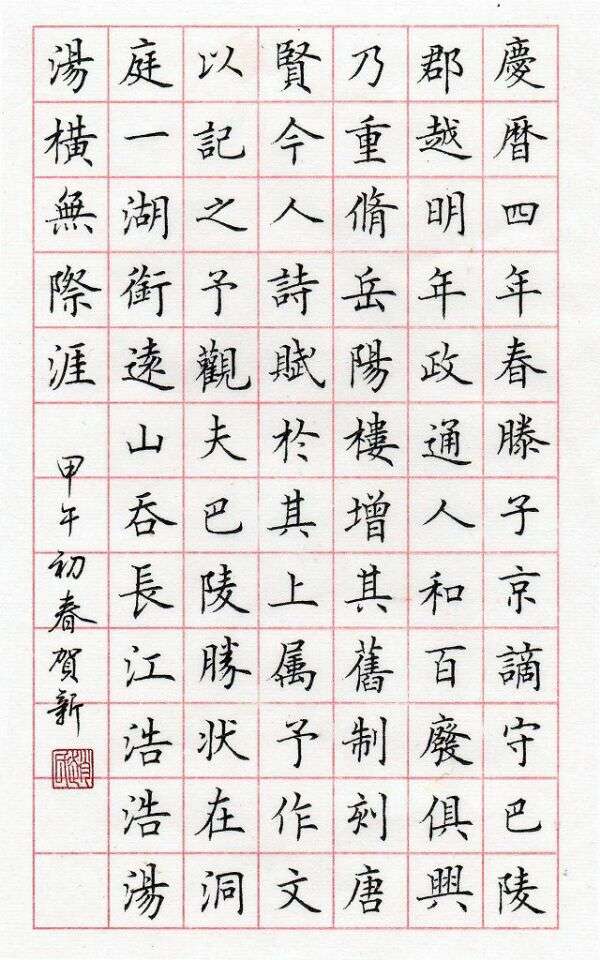 慶暦四年春滕子京謫守巴陵
郡越明年政通人和百廢俱興
乃重脩岳陽樓增其舊制刻唐
賢今人詩賦於其上属予作文
以記之予觀夫巴陵勝状在洞
庭一湖銜遠山吞長江浩浩湯
湯橫無際涯
甲午初春賀新